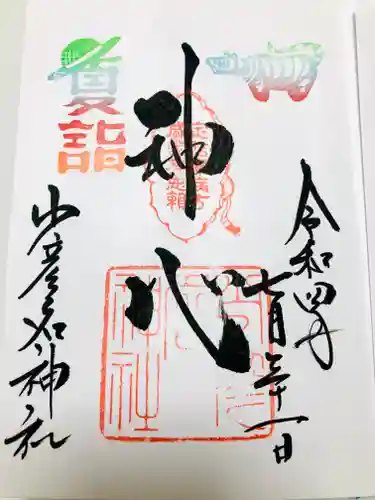 令和四年
七月三十一日
神心
夏詣
少彦名神社